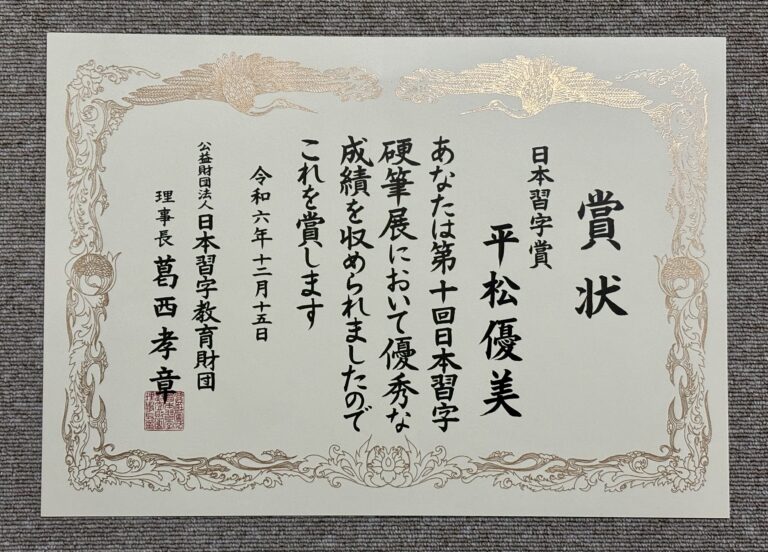 賞状
日本習字賞
平松優美
あなたは第十回日本習字
硬筆展において優秀な
成績を収められましたので
これを賞します
令和六年十二月十五日
公益財団法人日本習字教育財団
理事長 葛西孝章